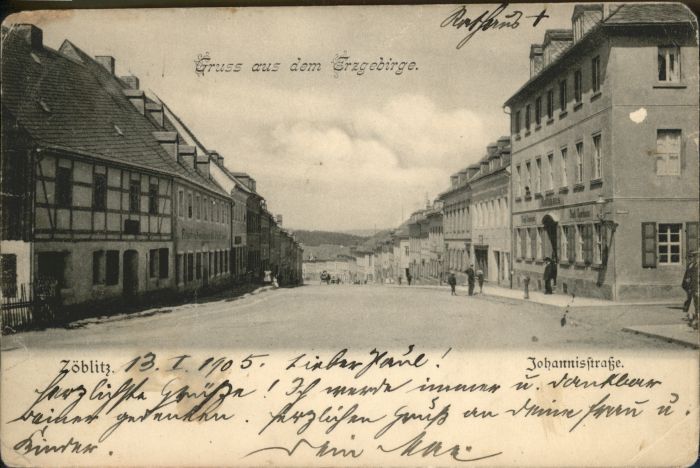 Rathaus +
Gruss aus dem Erzgebirge.
Zöblitz. 13. I. 1905. Lieber Paul! Johannisstraße.
Herzlichste Grüße! Ich werde immer u. dankbar
Deiner gedenken. Herzlichen Gruß an Deine Frau u.
Kinder. Dein Max.